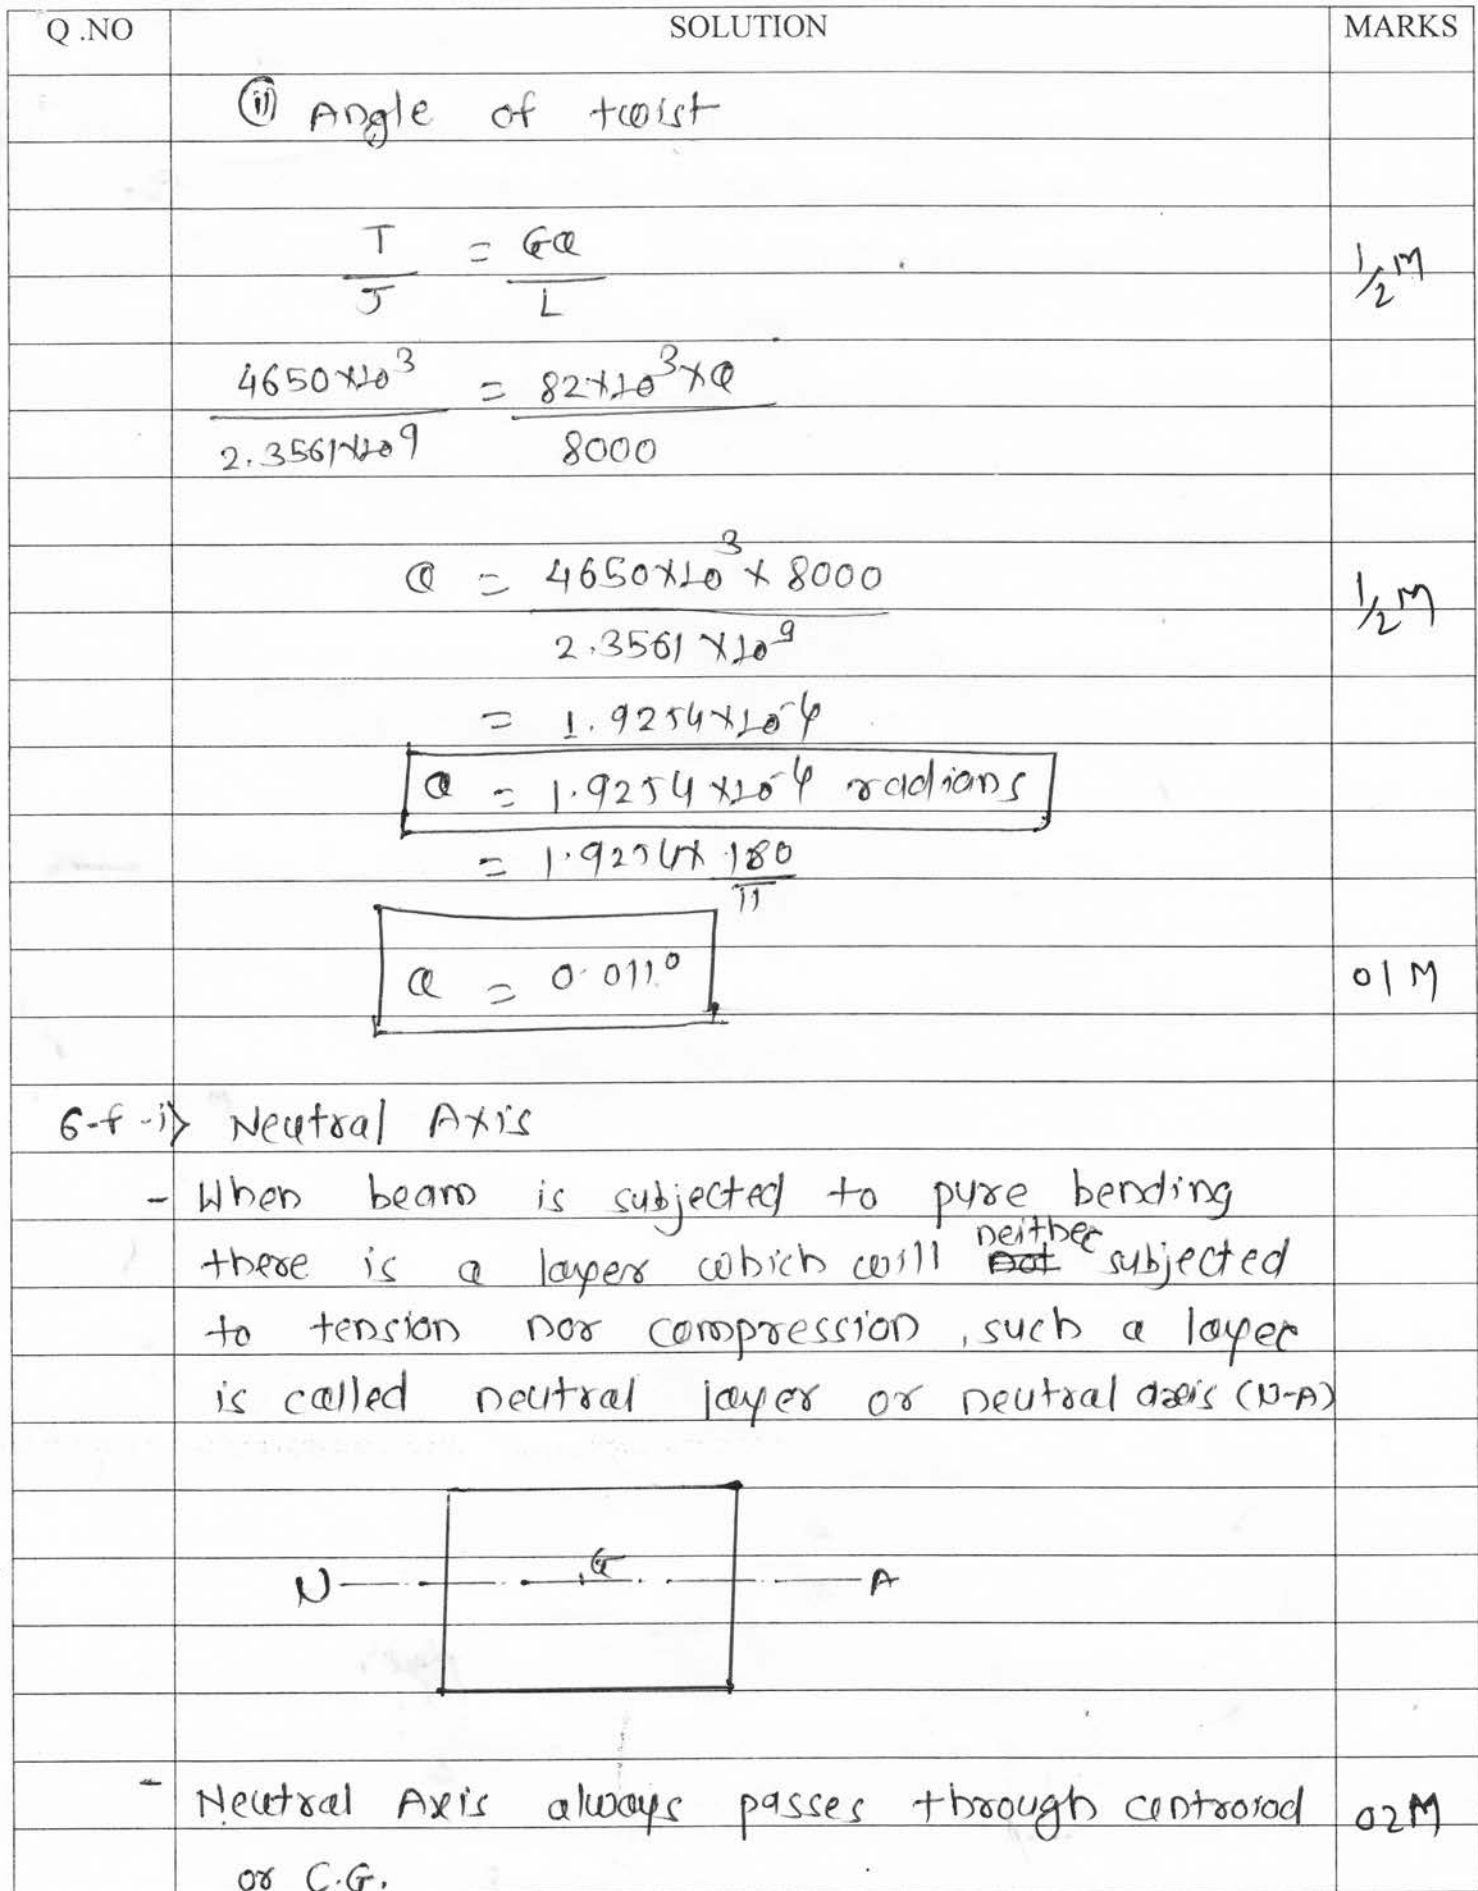 Q .NO SOLUTION MARKS
ii) Angle of twist
T/J = Gθ/L 1/2 M
4650×10^3 / 2.3561×10^9 = 82×10^3×θ / 8000
θ = 4650×10^3 × 8000 / 2.3561×10^9 1/2 M
= 1.9254×10^-4
θ = 1.9254×10^-4 radians
= 1.9254× 180/π
θ = 0.011°
01 M
6-f-i) Neutral Axis
- When beam is subjected to pure bending
there is a layer which will neither subjected
to tension nor compression, such a layer
is called neutral layer or neutral axis (N-A)
N G A
- Neutral Axis always passes through centroiod 02M
or C.G.